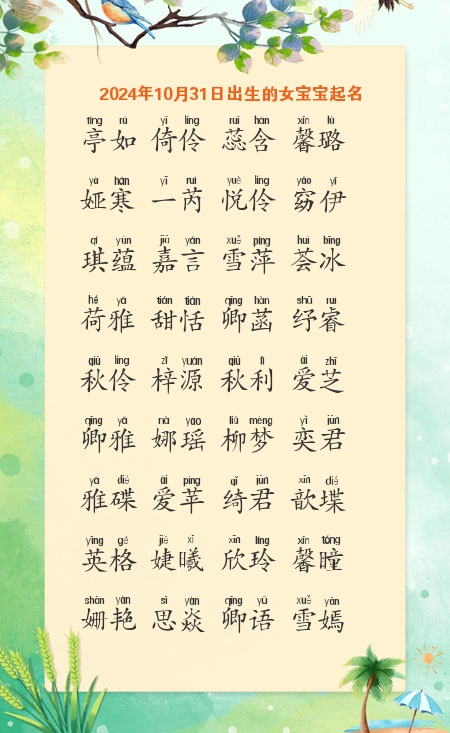 2024年10月31日出生的女宝宝起名
tíng rú yǐ líng ruǐ hán xīn lù
亭如 倚伶 蕊含 馨璐
yà hán yī ruì yuè líng yǎo yī
娅寒 一芮 悦伶 窈伊
qí yùn jiā yán xuě píng huì bīng
琪蕴 嘉言 雪萍 荟冰
hé yǎ tián tián qīng hàn shū ruì
荷雅 甜恬 卿菡 纾睿
qiū líng zǐ yuán qiū lì ài zhī
秋伶 梓源 秋利 爱芝
qīng yǎ nà yáo liǔ mèng yì jūn
卿雅 娜瑶 柳梦 奕君
yǎ dié ài píng qǐ jūn xīn dié
雅碟 爱苹 绮君 歆堞
yīng gé jié xī xīn líng xīn tóng
英格 婕曦 欣玲 馨瞳
shān yàn sī yàn qīng yǔ xuě yān
姗艳 思焱 卿语 雪嫣